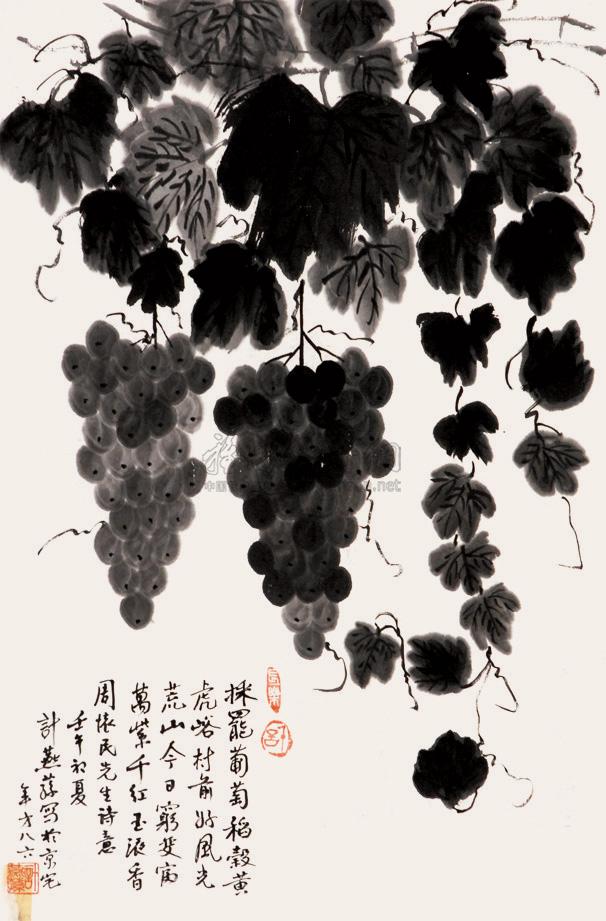 採罷葡萄稻穀黄
虎峪村前好風光
荒山今日窮變富
萬紫千紅玉液香
周懷民先生詩意
壬午初夏
計燕蓀写於京宅
年才八六